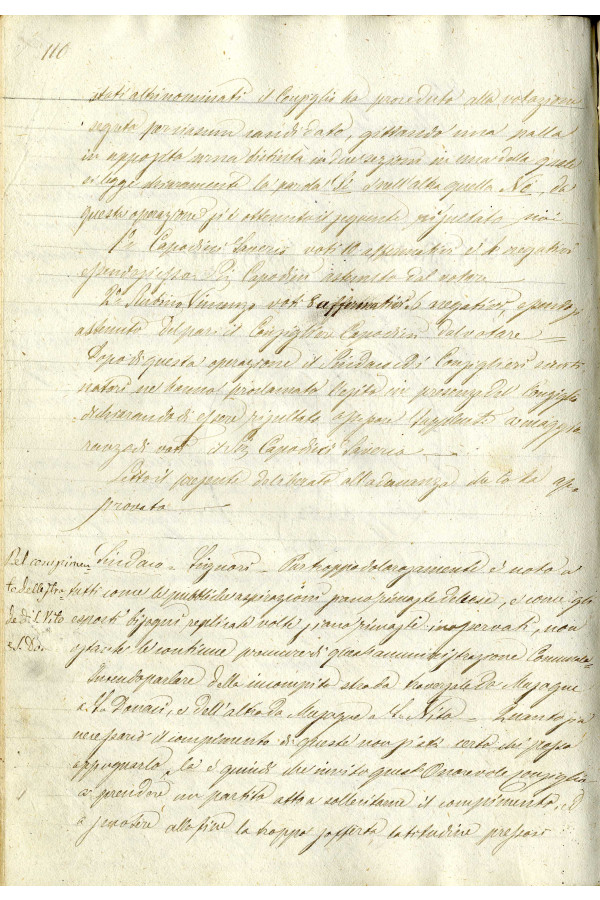 110
stati altri nominati il Consiglio ha proceduto alla votazione
segreta per ciascun candidato, gittando una palla
in apposita urna distinta in due sezioni in una delle quali
si legge chiaramente la parola Si e nell'altra quella No, da
questa operazione si è ottenuto il seguente risultato
Capodieci Saverio voti 10 affermativi e negativi
Capodieci astenuto dal votare
2° Rubino Vincenzo voti 8 affermativi 6 negativi,
astenuto del pari il Consigliere Capodieci dal votare
Dopo di questa operazione il Sindaco ed i Consiglieri scruti
natori ne hanno proclamato l'esito in presenza del Consiglio
dichiarando di essere risultato a maggio
ranza di voti il Capodieci Saverio
Letto il presente deliberato all'adunanza lo ha ap
provato
Del compimen
to delle stra
de di S. Vito
Sindaco = Signori = Pur troppo dolorosamente è noto a
tutti come le pubbliche aspirazioni sono rimaste deluse, e come gli
esposti bisogni replicate volte, sono rimasti inosservati, non
ostante le continue premure di quest'amministrazione Comunale
Intendo parlare della incompiuta strada traversale da Mesagne
a S. Donaci, e dell'altra da Mesagne a S. Vito = Quanto sia
necessario il compimento di queste non vi è certo chi possa
oppugnarlo, è quindi che invito questo Onorevole Consiglio
a prendere un partito atto a sollecitarne il compimento, ed
a scuotere alla fine la troppo sofferta